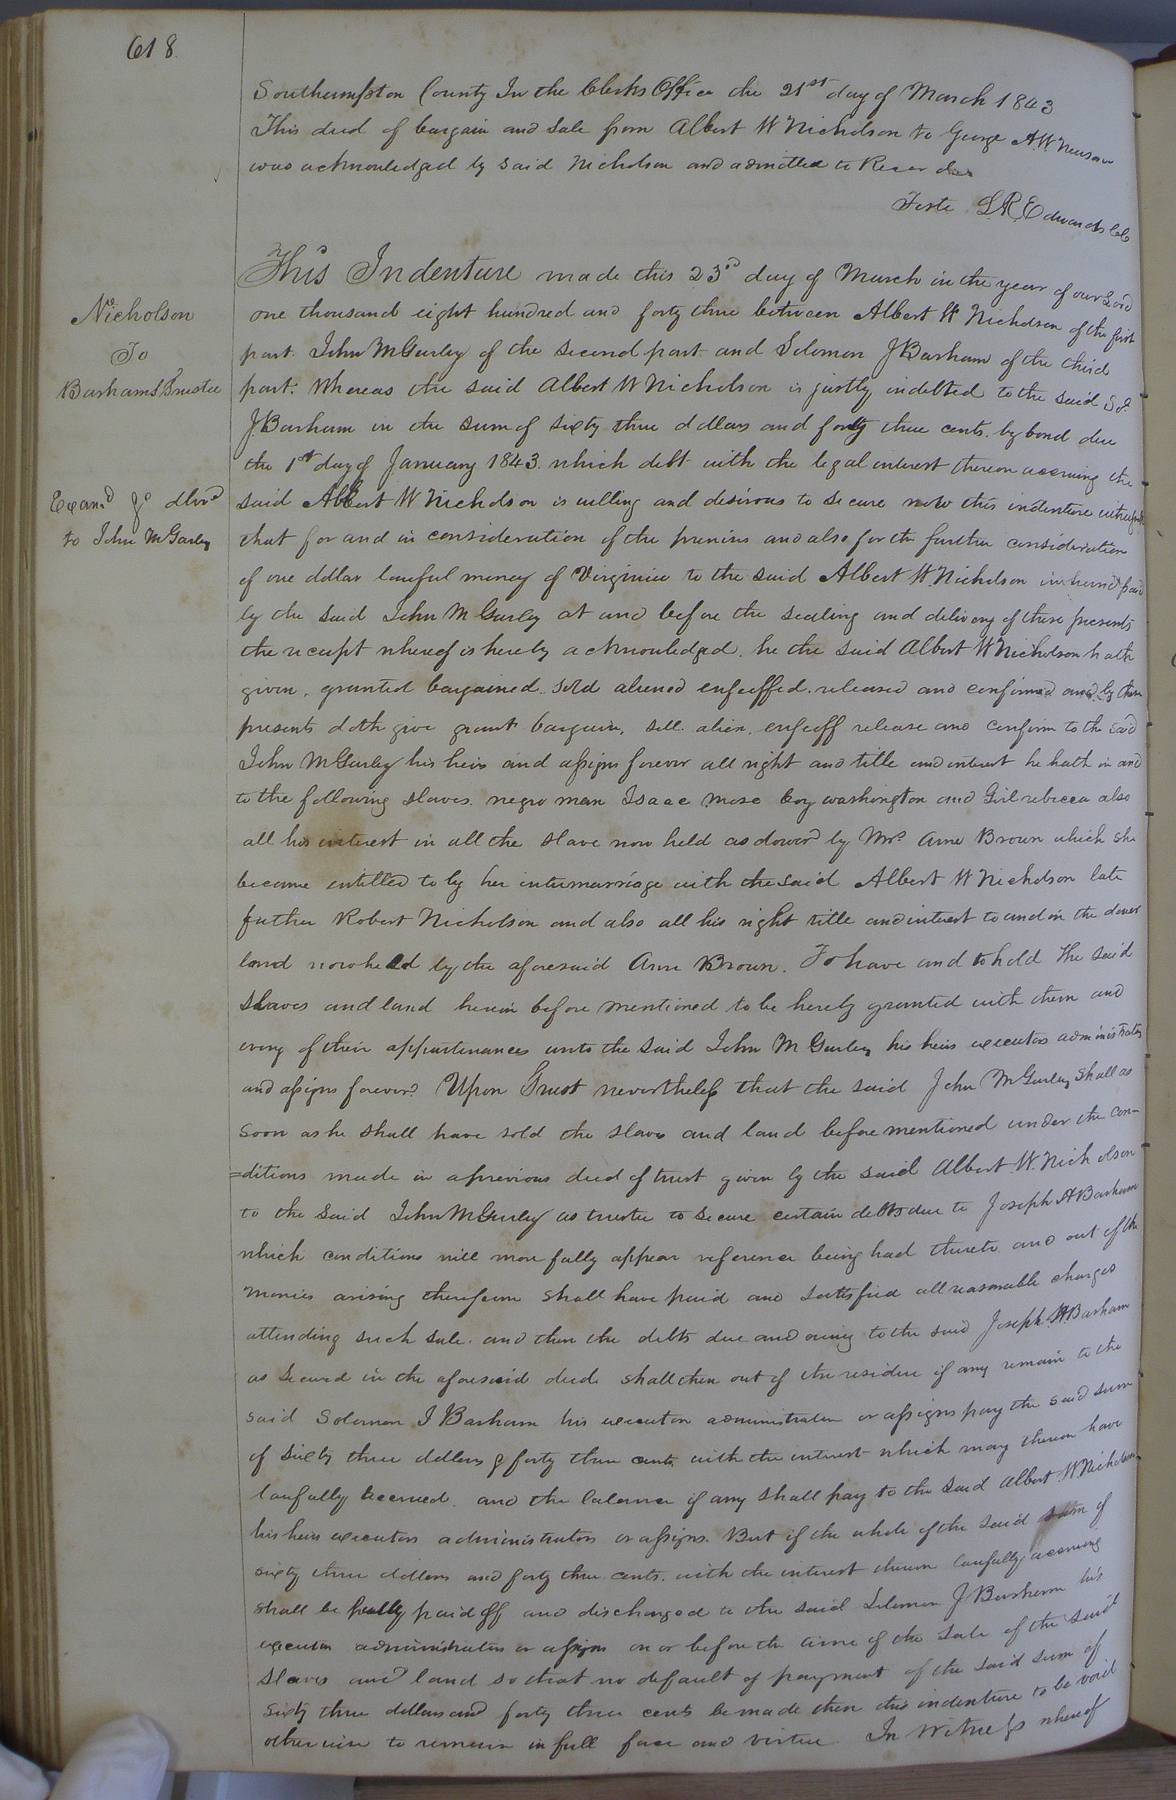 618
Southampton County In the Clerks Office the 21st day of March 1843
This deed of bargain and sale from Albert W Nicholson to George A.W. Newsom
was acknowledged by said Nicholson and admitted to Record
Teste L.R. Edwards CC
This Indenture made this 23rd day of March in the year of our Lord
one thousand eight hundred and forty three between Albert W Nicholson of the first
part. John M Gurley of the second part and Solomon J Barham of the third
part. Whereas the said Albert W Nicholson is justly indebted to the said Sol.
J. Barham in the sum of sixty three dollars and forty three cents. by bond due
the 1st day of January 1843. which debt with the legal interest thereon accruing the
said Albert W Nicholson is willing and desirous to secure now this indenture witnesseth
that for and in consideration of the premises and also for the further consideration
of one dollar lawful money of Virginia to the said Albert W Nicholson in hand paid
by the said John M Gurley at and before the sealing and delivery of these presents
the receipt whereof is hereby acknowledged. he the said Albert W Nicholson hath
given. granted bargained. sold aliened enfeoffed. released and confirmed and by these
presents doth give grant bargain, sell. alien. enfeoff release and confirm to the said
John M Gurley his heirs and assigns forever all right and title and interest he hath in and
to the following slaves. negro man Isaac Mose boy washington and Girl rebecca also
all his interest in all the slave now held as dower by Mrs. Anne Brown which she
became entitled to by her intermarriage with the said Albert W Nicholson late
father Robert Nicholson and also all his right title and interest to and in the dower
land now held by the aforesaid Anne Brown. To have and to hold The said
slaves and land herein before mentioned to be hereby granted with them and
every of their appurtenances unto the said John M Gurley his heirs executors administrators
and assigns forever. Upon Trust nevertheless that the said John M Gurley shall as
soon as he shall have sold the slaves and land before mentioned under the con-
=ditions made in a previous deed of trust given by the said Albert. W. Nicholson
to the said John M Gurley as trustee to secure certain debts due to Joseph A Barham
which conditions will more fully appear reference being had thereto. and out of the
monies arising therefrom shall have paid and satisfied all reasonable charges
attending such sale. and then the debts due and owing to the said Joseph. A Barham
as secured in the aforesaid deed shall then out of the residue if any remain to the
said Solomon J Barham his executor administrator or assigns pay the said sum
of sixty three dollars & forty three cents with the interest which may thereon have
lawfully accrued. and the balance if any shall pay to the said Albert. W Nicholson
his heirs executors administrators or assigns. But if the whole of the said sum of
sixty three dollars and forty three cents. with the interest thereon lawfully accruing
shall be fully paid off and discharged to the said Solomon J Barham his
executor administrators or assigns on or before the time of the sale of the said
slaves and land so that no default of payment of the said sum of
sixty three dollars and forty three cents be made then this indenture to be void
otherwise to remain in full force and virtue In Witness whereof
Nicholson
To
Barhams Trustee
Examd & dlvd
to John M Gurley